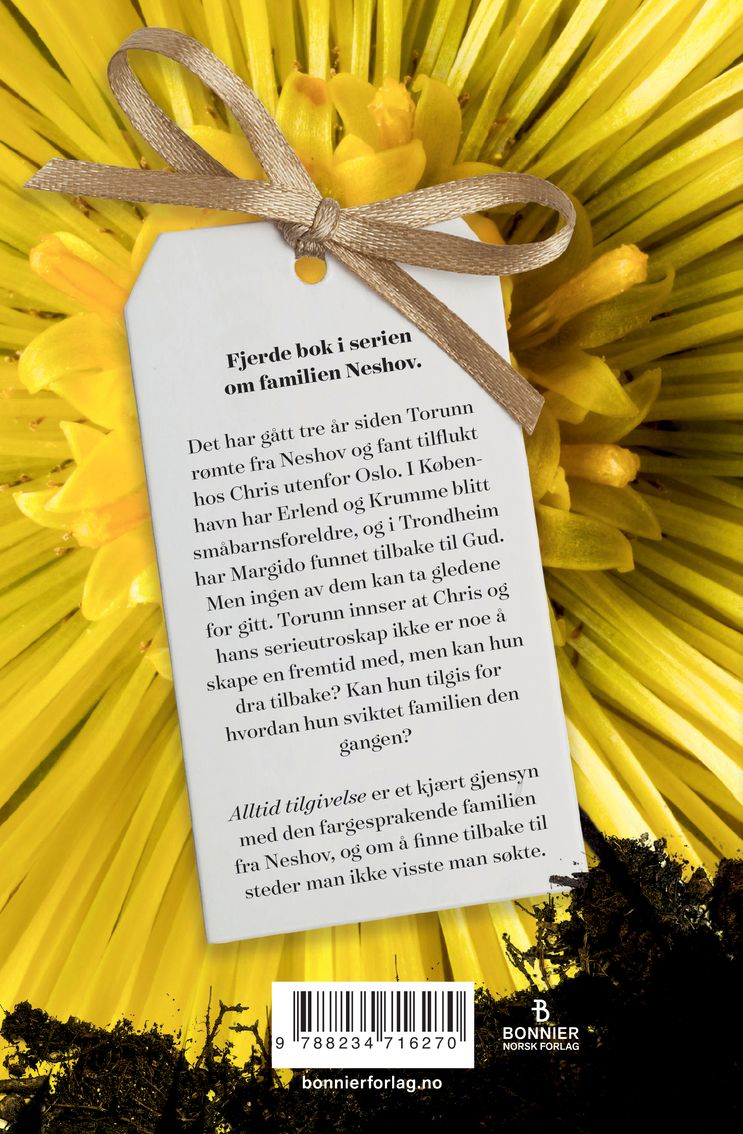 Fjerde bok i serien
om familien Neshov.
Det har gått tre år siden Torunn
rømte fra Neshov og fant tilflukt
hos Chris utenfor Oslo. I Køben-
havn har Erlend og Krumme blitt
småbarnsforeldre, og i Trondheim
har Margido funnet tilbake til Gud.
Men ingen av dem kan ta gledene
for gitt. Torunn innser at Chris og
hans serieutroskap ikke er noe å
skape en fremtid med, men kan hun
dra tilbake? Kan hun tilgis for
hvordan hun sviktet familien den
gangen?
Alltid tilgivelse er et kjært gjensyn
med den fargesprakende familien
fra Neshov, og om å finne tilbake til
steder man ikke visste man søkte.
9 788234 716270
BONNIER
NORSK FORLAG
bonnierforlag.no